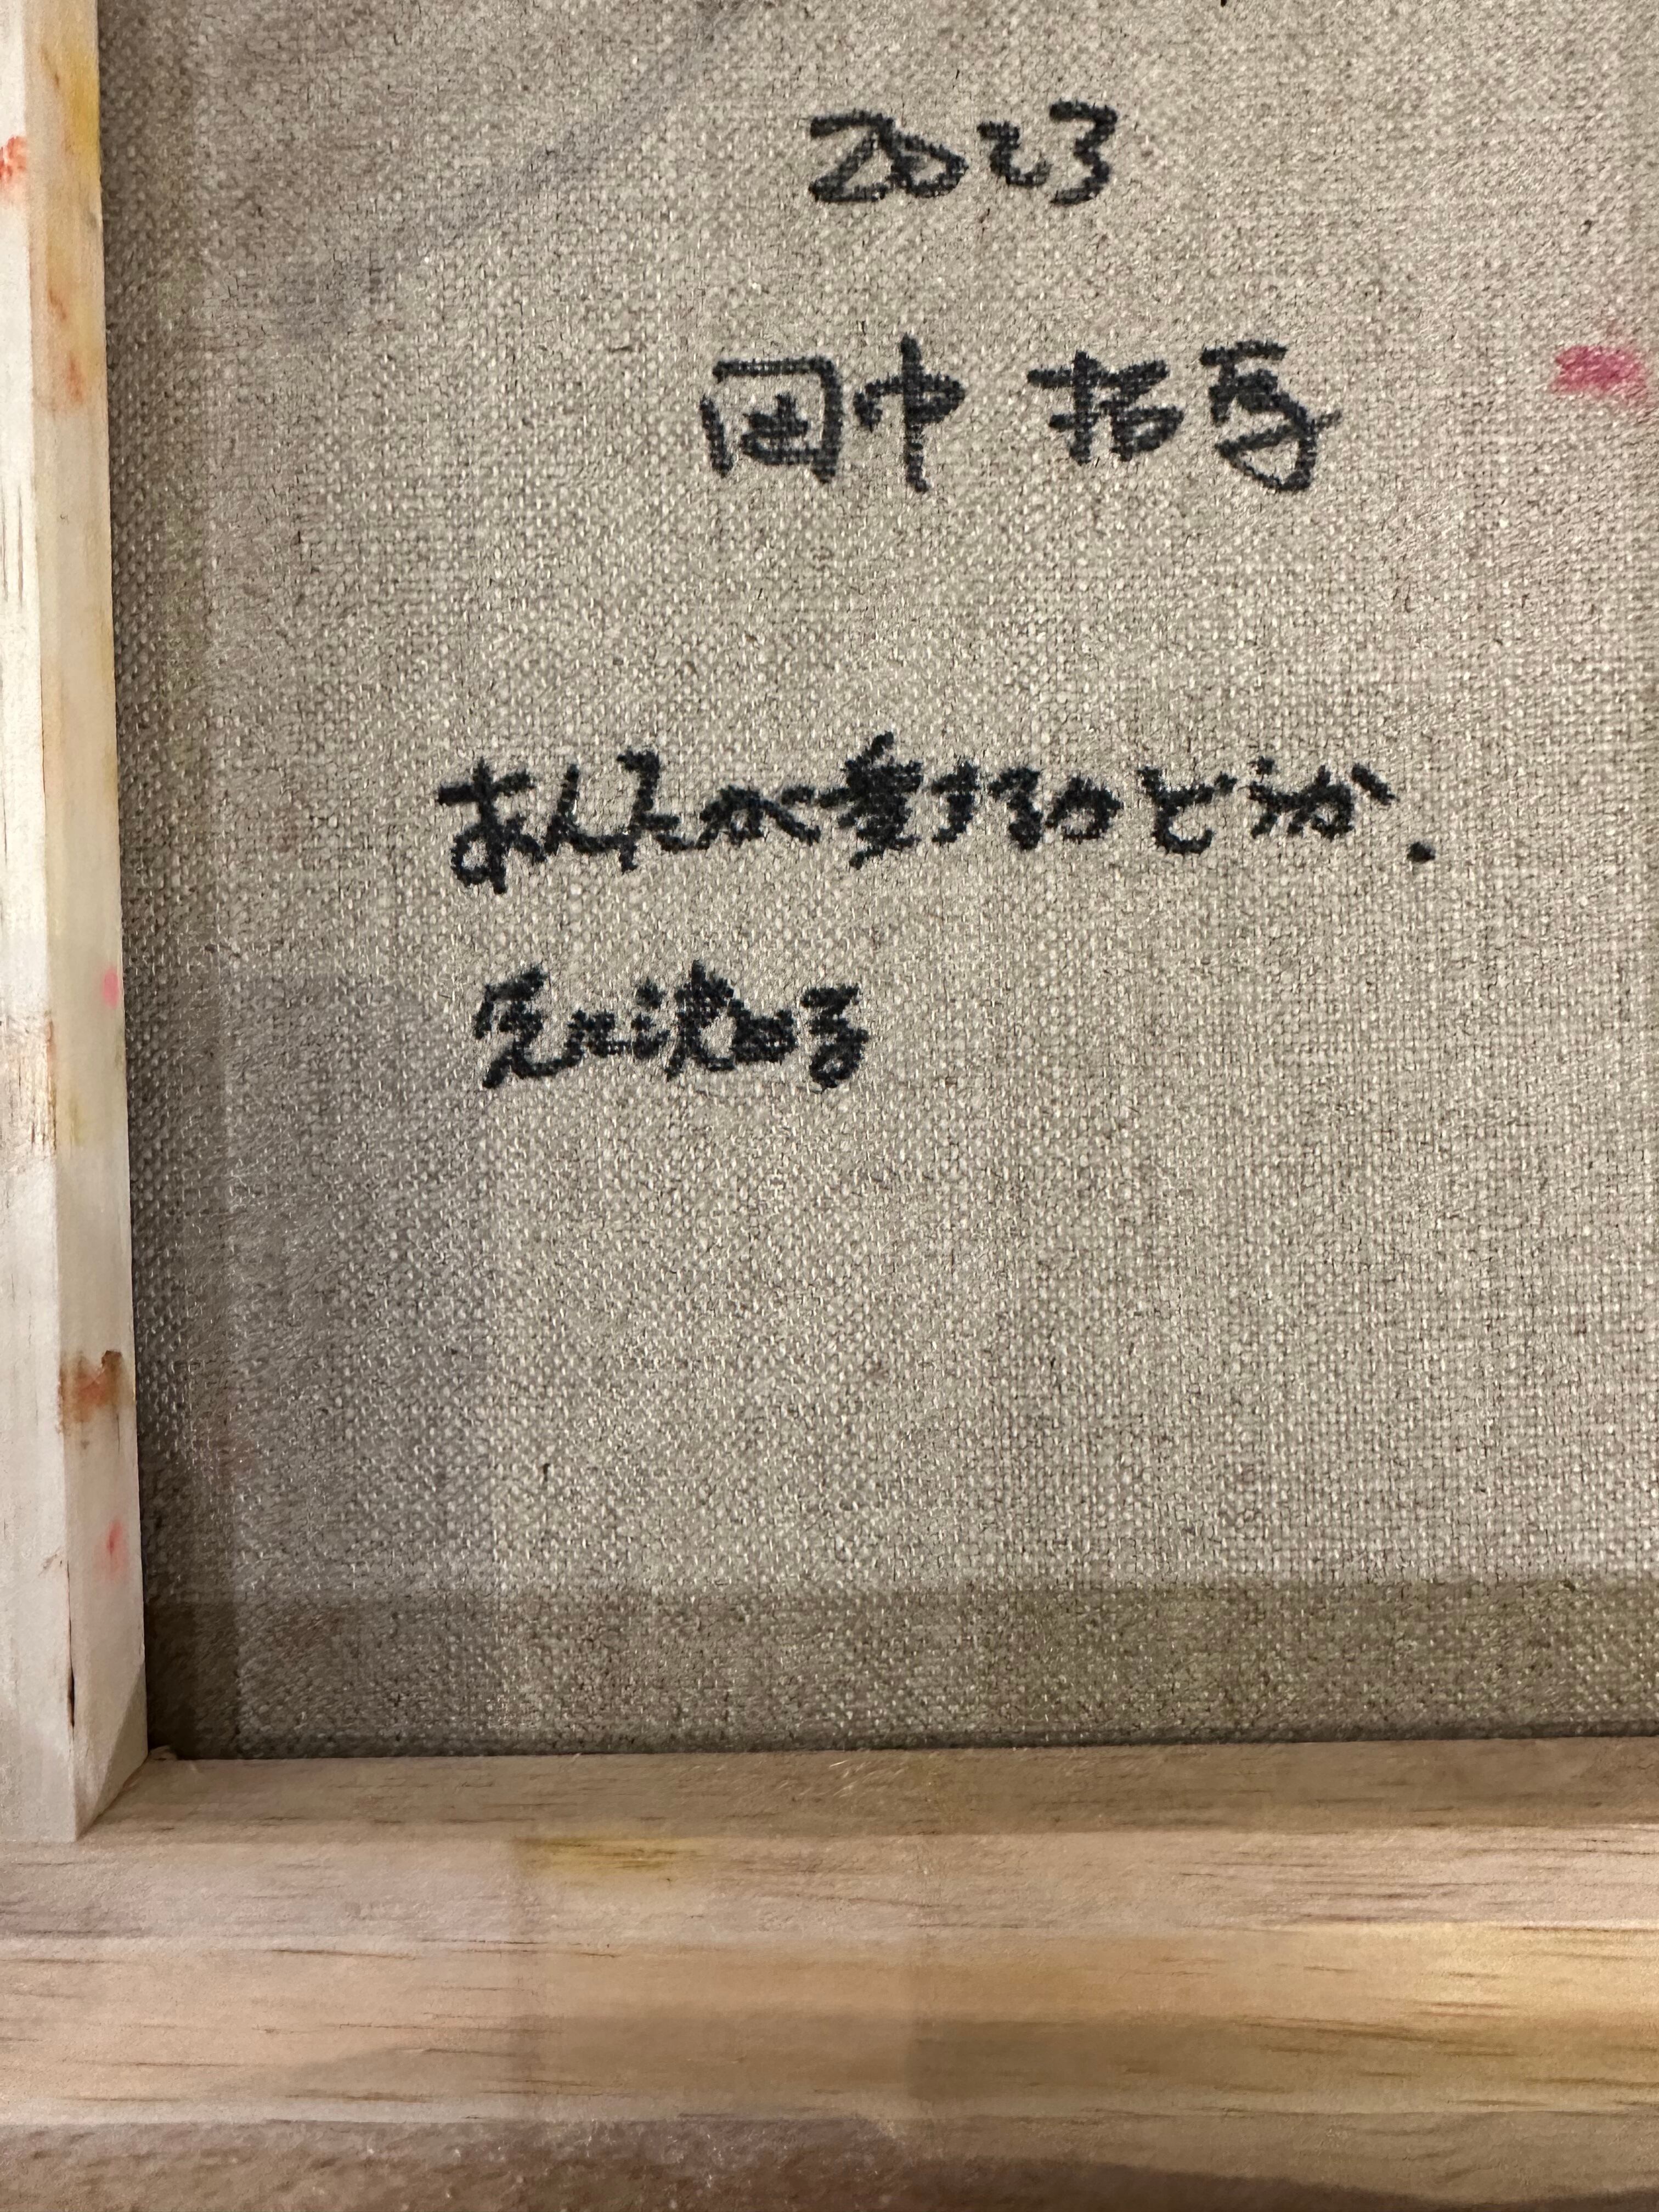 2023
田中 拓馬
あんたが愛するかどうか.
先に決める